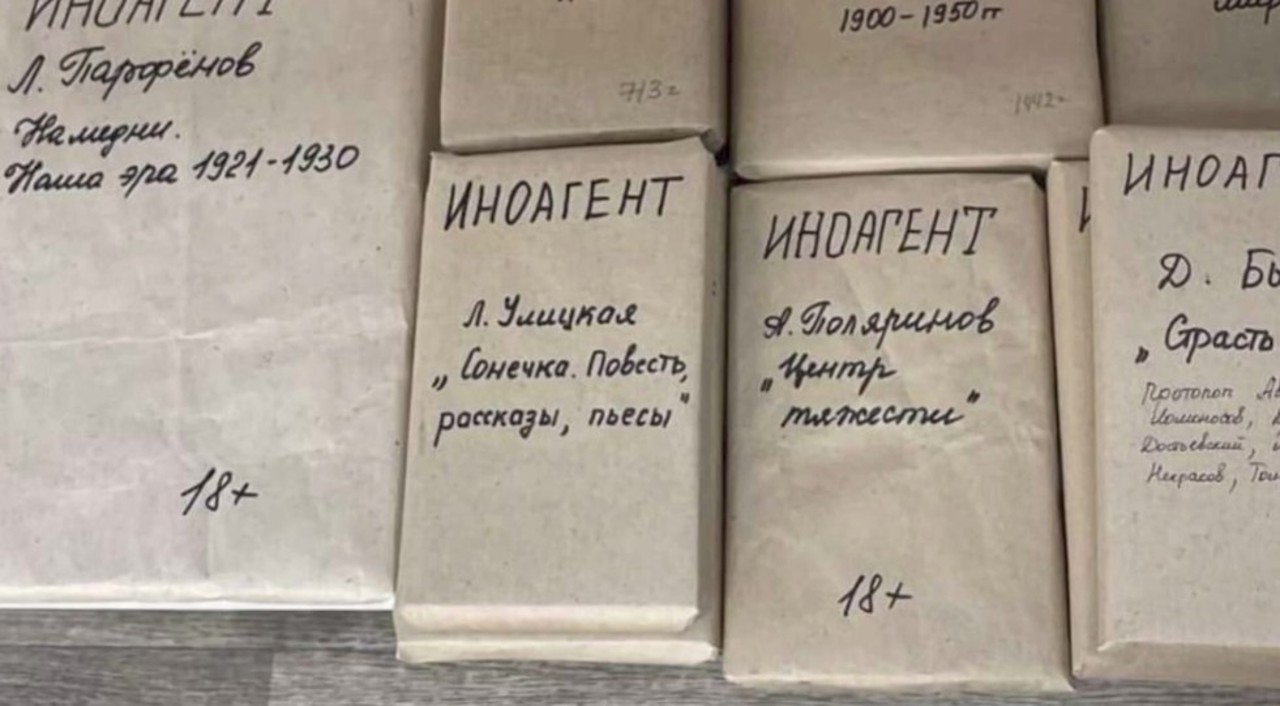 ИНОАГЕНТ
Л. Парфёнов
Намедни.
Наша эра 1921-1930
18+
713г
1900-1950 гг
1442г
ИНОАГЕНТ
Л. Улицкая
„Сонечка. Повесть,
рассказы, пьесы"
ИНОАГЕНТ
А. Поляринов
„Центр
тяжести"
18+
ИНОАГ
Д. Бы
„Страсть
Протопоп Ав
Ломоносов,
Достоевский,
Некрасов,